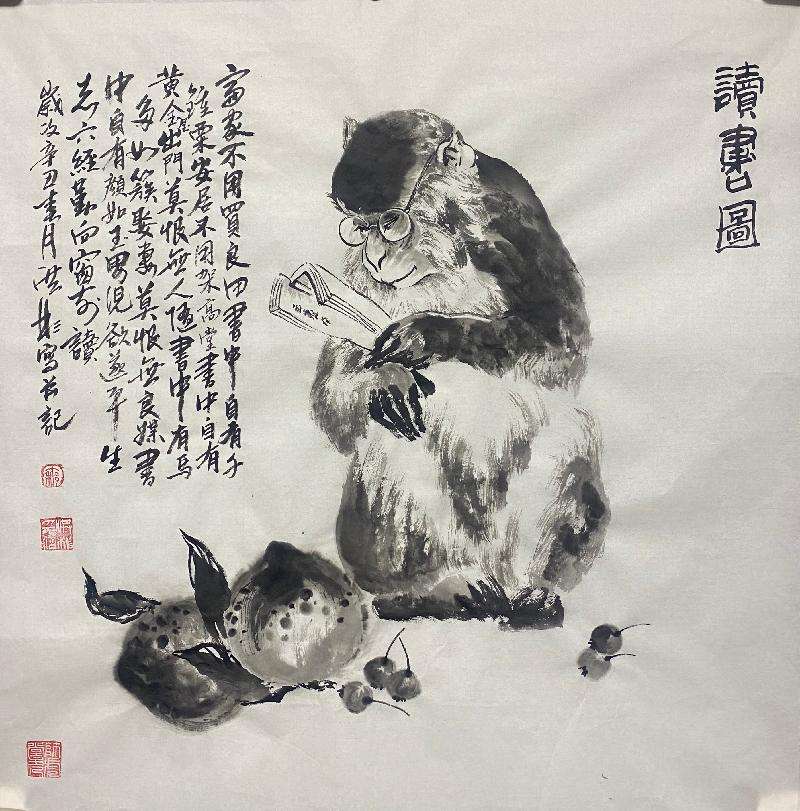 讀書圖
富家不用買良田書中自有千
鍾粟安居不用架高堂書中自有
黄金屋出門莫恨無人隨書中有馬
多如簇娶妻莫恨無良媒書
中自有顏如玉男兒欲遂平生
志六經勤向窗前讀
歲次辛丑春月洪彬寫並記